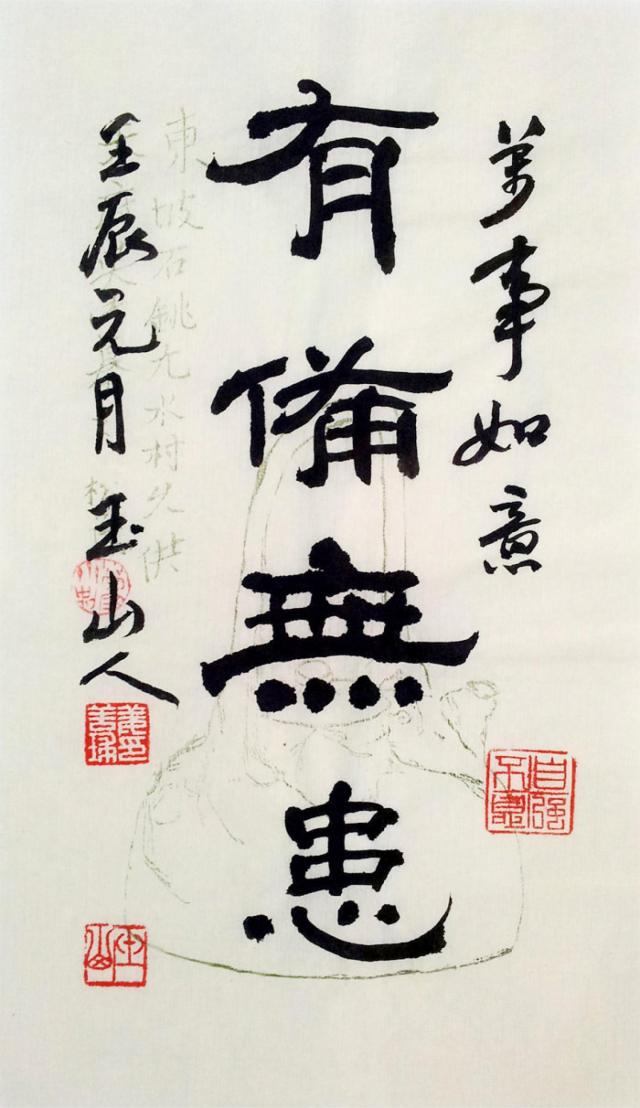 萬事如意
自强不息
有備無患
東坡石銚九水村供
壬辰元月玉山人
玉山